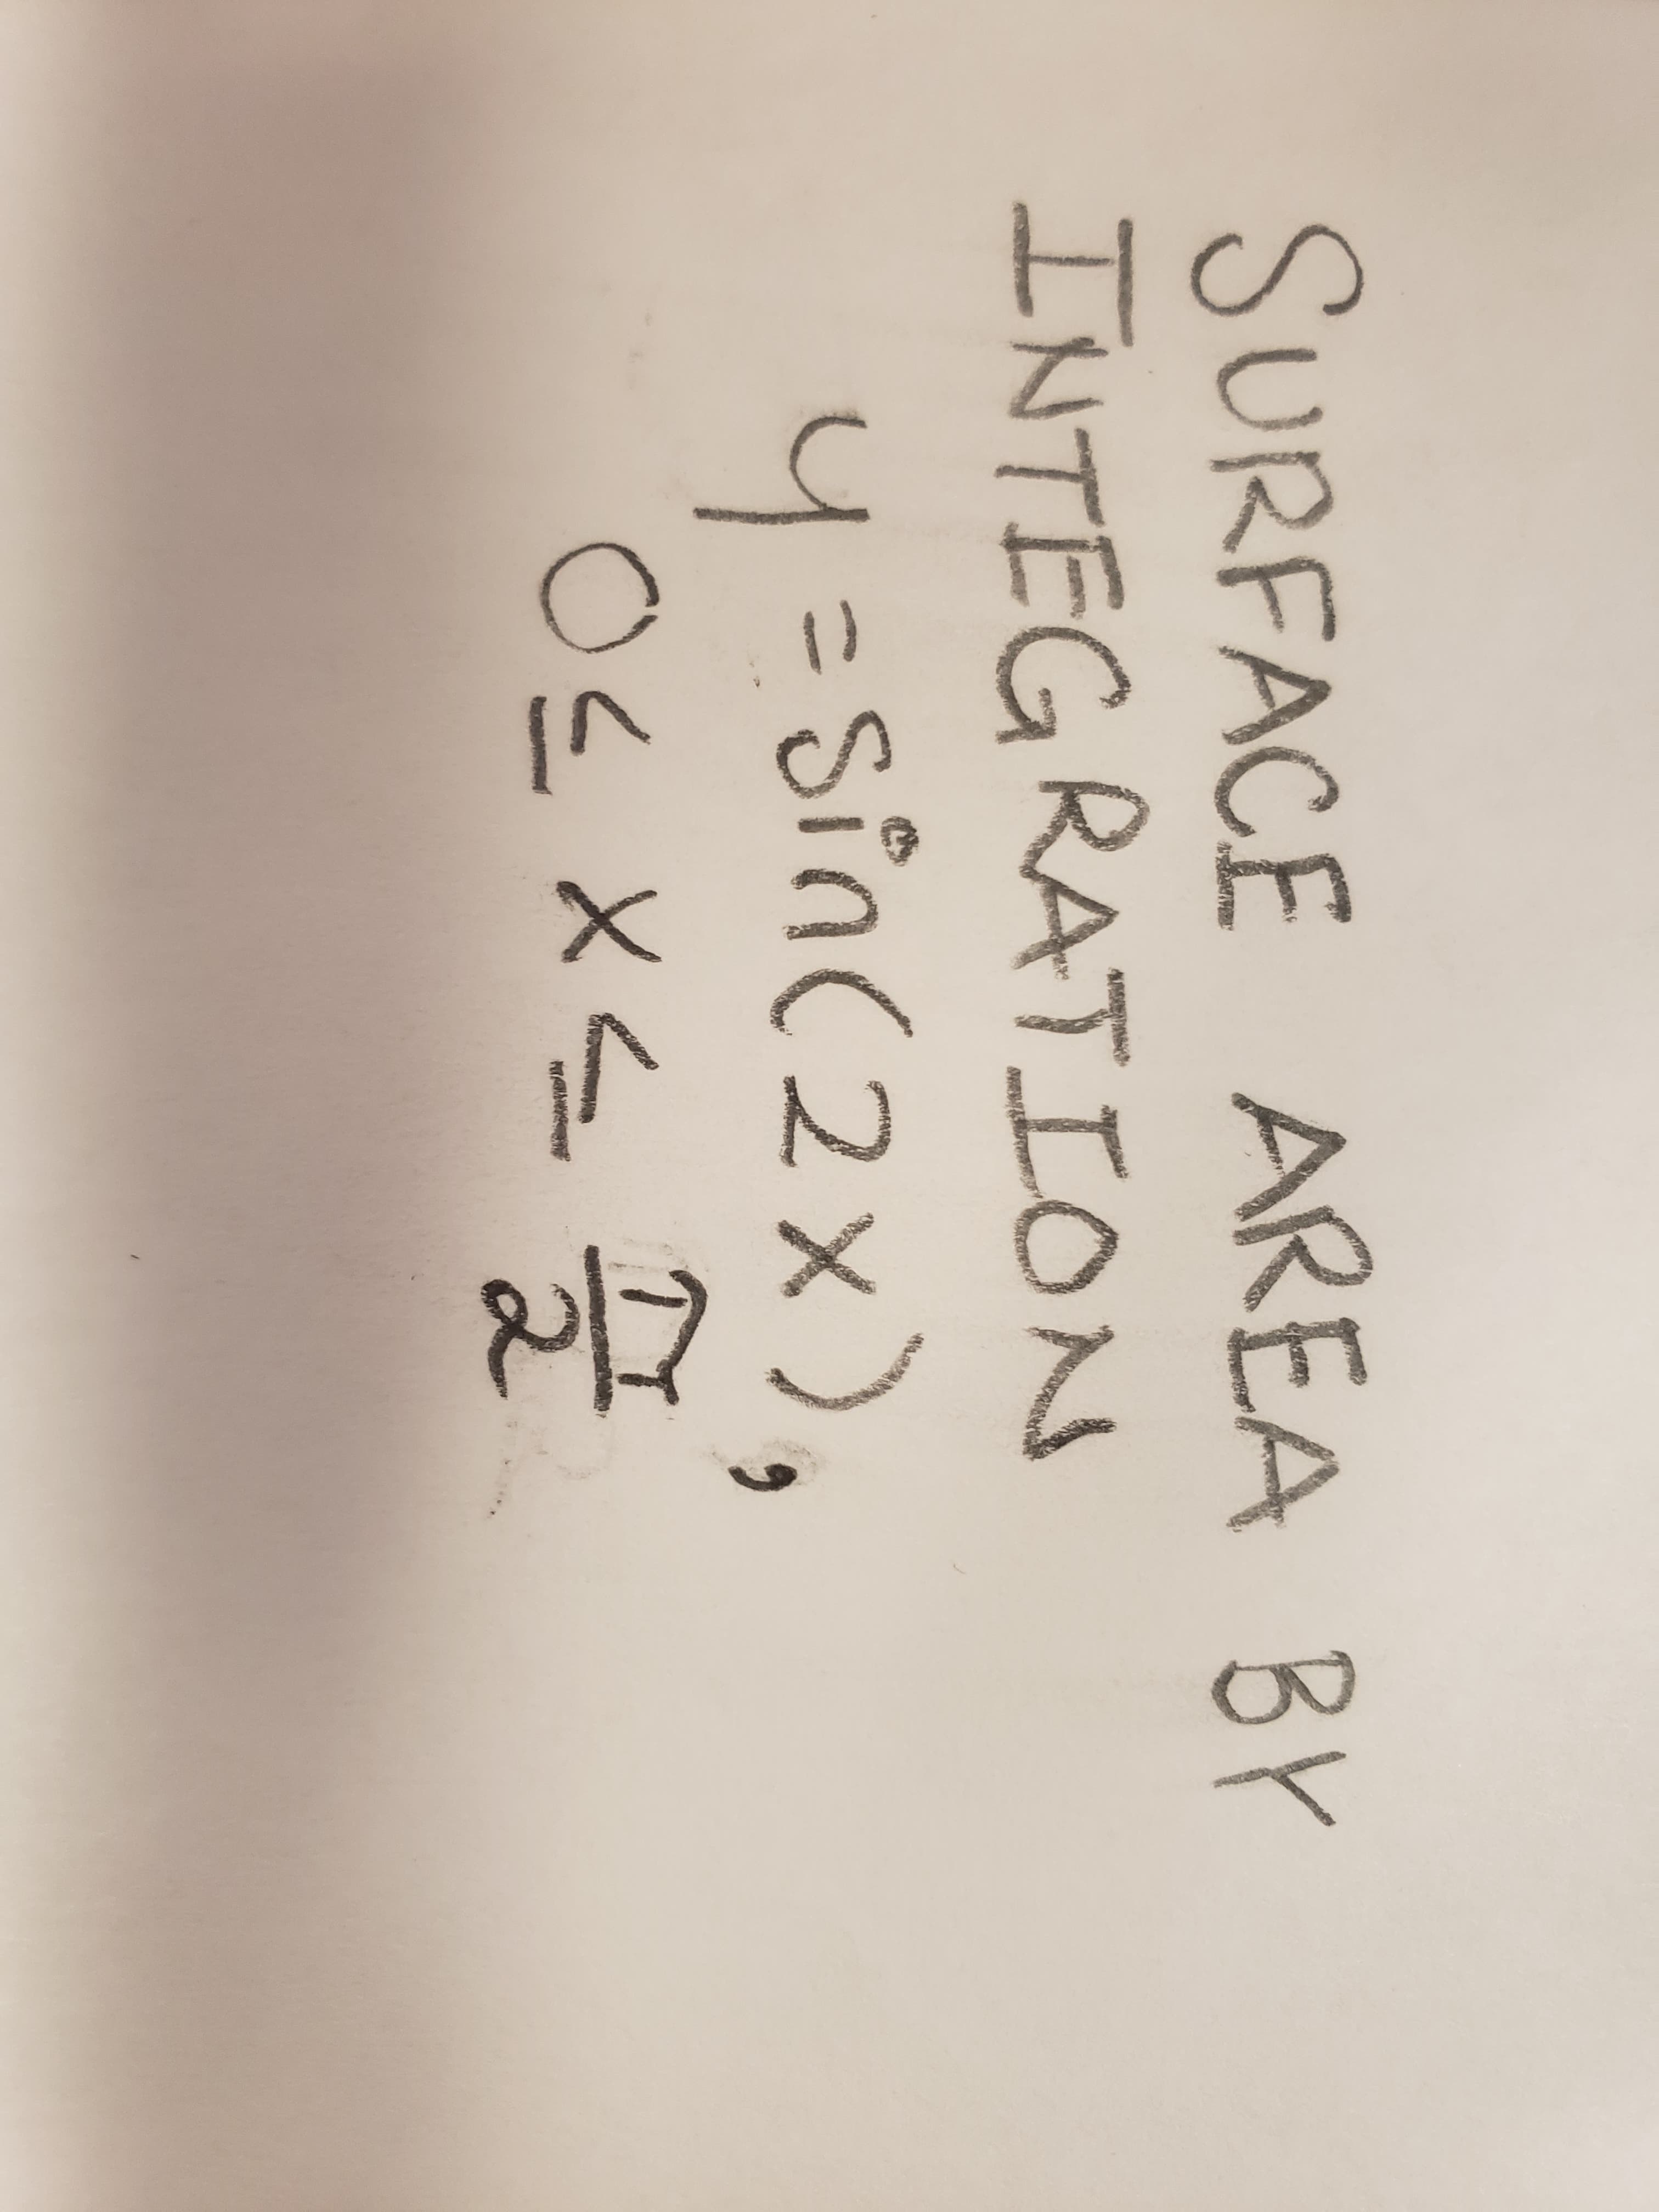 SURFACE AREA BY
INTEGRATION
y = sin(2x),
0 ≤ x ≤ π/2